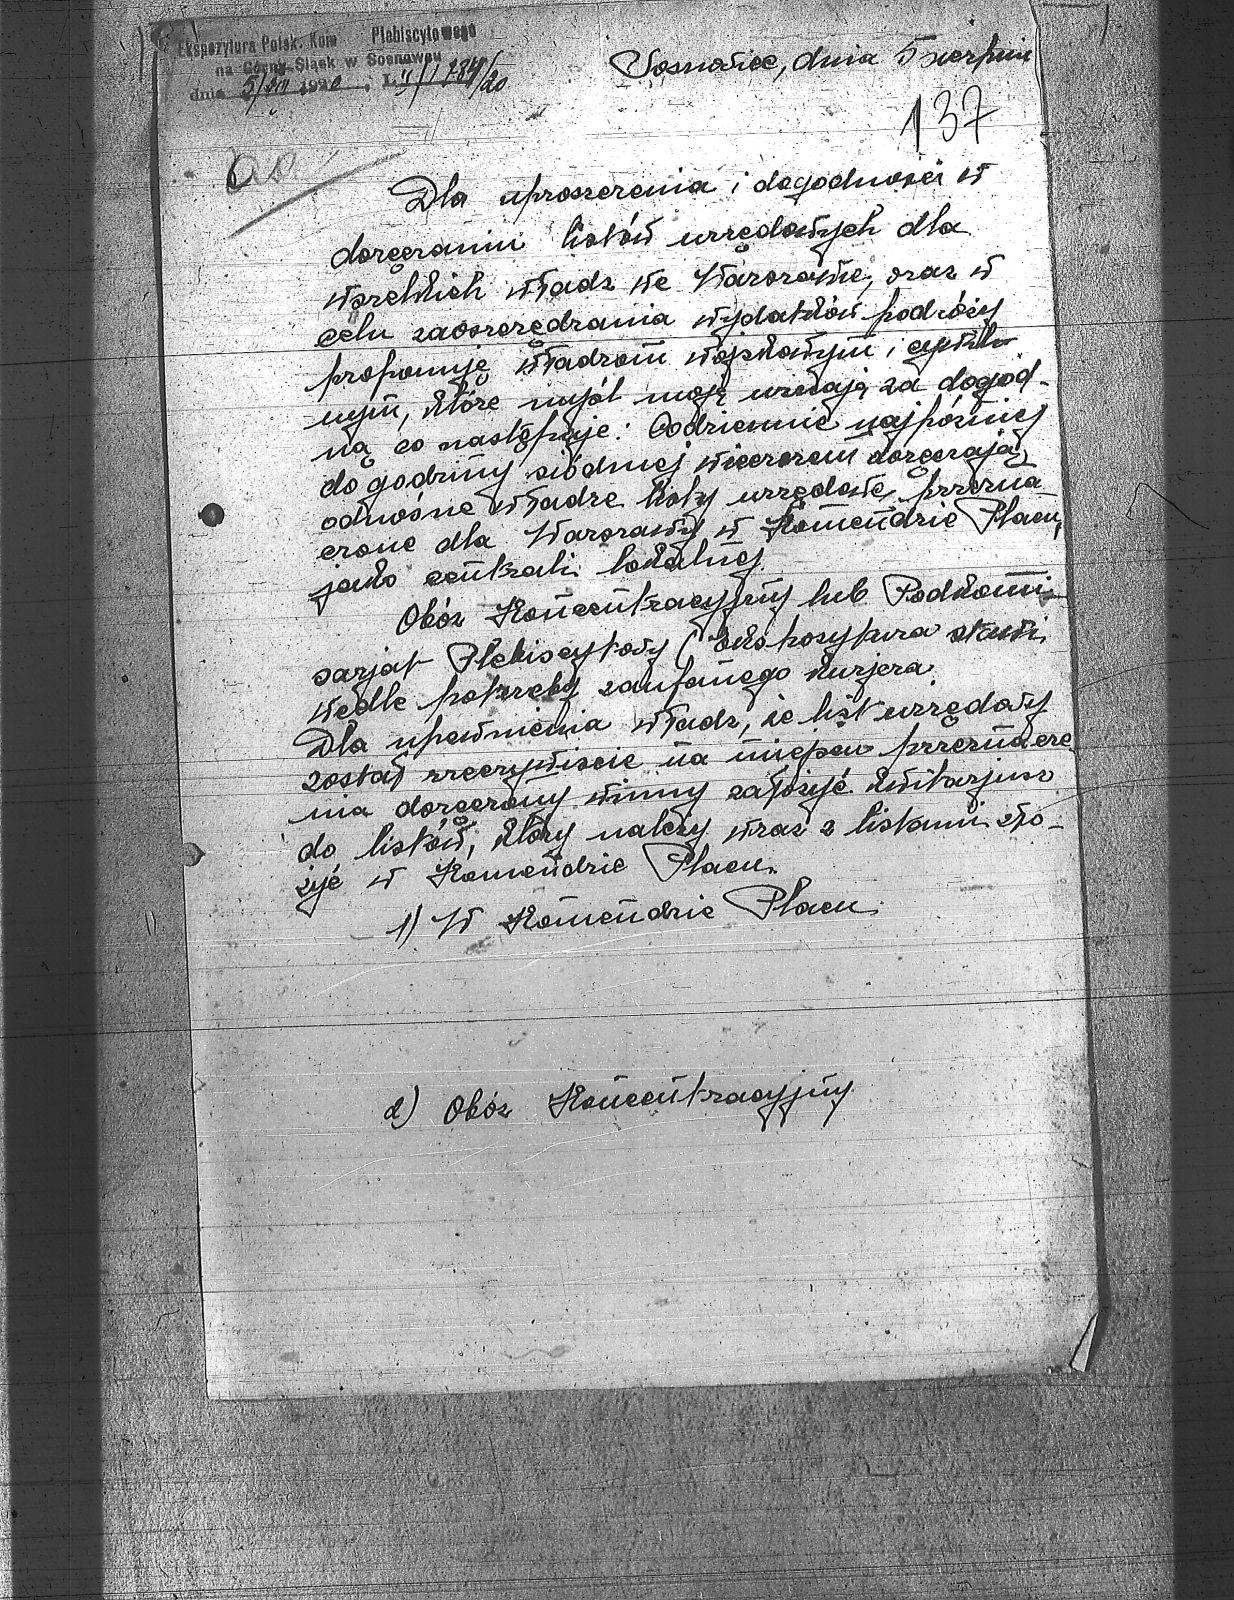 Ekspozytura Polsk. Kom Plebiscytowego
na Górny-Śląsk w Sosnowcu
dnia 5/VIII 1920, L. 784/20
Sosnowiec, dnia 5 sierpnia
137
Dla uproszczenia i dogodności w
doręczaniu listów urzędowych dla
wszelkich władz we Warszawie, oraz w
celu zaoszczędzania wydatków podróży
proponuję władzom wojskowym i cywil-
nym, które myśl moję uznają za dogod-
ną co następuje: Codziennie najpóźniej
do godziny siódmej wieczorem doręczają
odnośne władze listy urzędowe, przezna
czone dla Warszawy w Komendzie Placu,
jako centrali lokalnej.
Obóz Koncentracyjny lub Podkomi-
sarjat Plebiscytowy (Ekspozytura stawi
wedle potrzeby zaufanego kurjera.
Dla upewnienia władz, że list urzędowy
został rzeczywiście na miejscu przeznacze
nia doręczony winny założyć kwitarjusz
do listów, który należy wraz z listami zło-
żyć w Komendzie Placu.
1) W Komendzie Placu.
2) Obóz Koncentracyjny